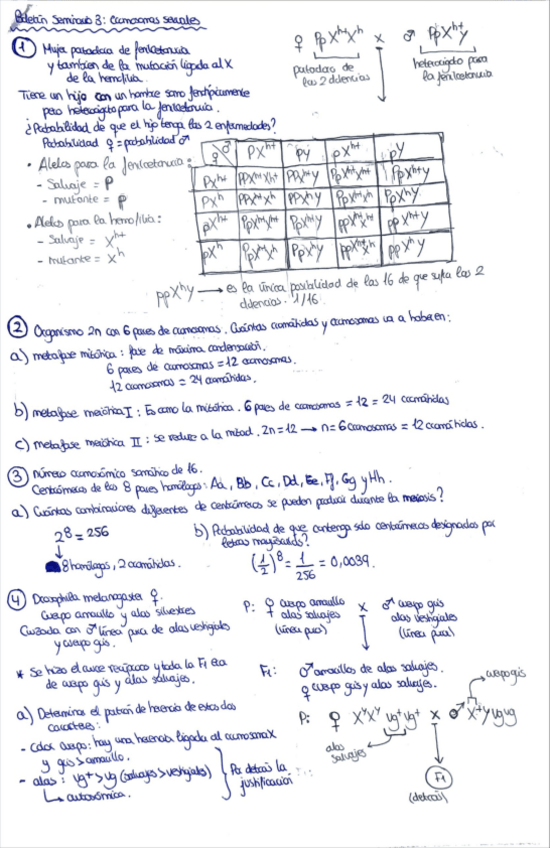 Boletín Seminario 3: Cromosomas sexuales
① Mujer portadora de fenilcetonuria
y también de la mutación ligada al X
de la hemofilia.
Tiene un hijo con un hombre sano fenotípicamente
pero heterocigoto para la fenilcetonuria.
¿Probabilidad de que el hijo tenga las 2 enfermedades?
Probabilidad ♀ = probabilidad ♂
♀ PpX^h+X^h x ♂ PpX^h+Y
portadora de
las 2 dolencias
heterocigoto para
la fenilcetonuria
• Alelos para la fenilcetonuria:
- Salvaje = P
- mutante = p
• Alelos para la hemofilia:
- Salvaje = X^h+
- Mutante = X^h
♀ ♂ PX^h+ PY pX^h+ pY
PX^h+ PPX^h+X^h+ PPX^h+Y PpX^h+X^h+ PpX^h+Y
PX^h PPX^h+X^h PPX^hY PpX^h+X^h PpX^hY
pX^h+ PpX^h+X^h+ PpX^h+Y ppX^h+X^h+ ppX^h+Y
pX^h PpX^h+X^h PpX^hY ppX^h+X^h ppX^hY
ppX^hY → es la única posibilidad de las 16 de que sufra las 2
dolencias. 1/16
② Organismo 2n con 6 pares de cromosomas. Cuántas cromátidas y cromosomas va a haber en:
a) metafase mitótica: fase de máxima condensación.
6 pares de cromosomas = 12 cromosomas.
12 cromosomas = 24 cromátidas.
b) metafase meiótica I: Es como la mitótica. 6 pares de cromosomas = 12 = 24 cromátidas
c) metafase meiótica II: se reduce a la mitad. 2n=12 → n=6 cromosomas = 12 cromátidas.
③ número cromosómico somático de 16.
Centrómeros de los 8 pares homólogos: Aa, Bb, Cc, Dd, Ee, Ff, Gg y Hh.
a) Cuántas combinaciones diferentes de centrómeros se pueden producir durante la meiosis?
2^8 = 256
↓
8 homólogos, 2 cromátidas.
b) Probabilidad de que contenga solo centrómeros designados por
letras mayúsculas?
(1/2)^8 = 1/256 = 0,0039.
④ Drosophila melanogaster ♀.
Cuerpo amarillo y alas silvestres
Cruzada con ♂ línea pura de alas vestigiales
y cuerpo gris.
* Se hizo el cruce recíproco y toda la F1 era
de cuerpo gris y alas salvajes.
P: ♀ cuerpo amarillo
alas salvajes
(línea pura)
x ♂ cuerpo gris
alas vestigiales
(línea pura)
F1: ♂ amarillos de alas salvajes.
♀ cuerpo gris y alas salvajes.
a) Determine el patrón de herencia de estos dos
caracteres:
- color cuerpo: hay una herencia ligada al cromosoma X
y gris > amarillo.
- alas: vg+ > vg (salvajes > vestigiales)
↳ autosómica.
Por detrás la
justificación
cuerpo gris
P: ♀ X^yX^y vg+vg+ x ♂ X^+Y vgvg
alas
salvajes
F1
(detrás)